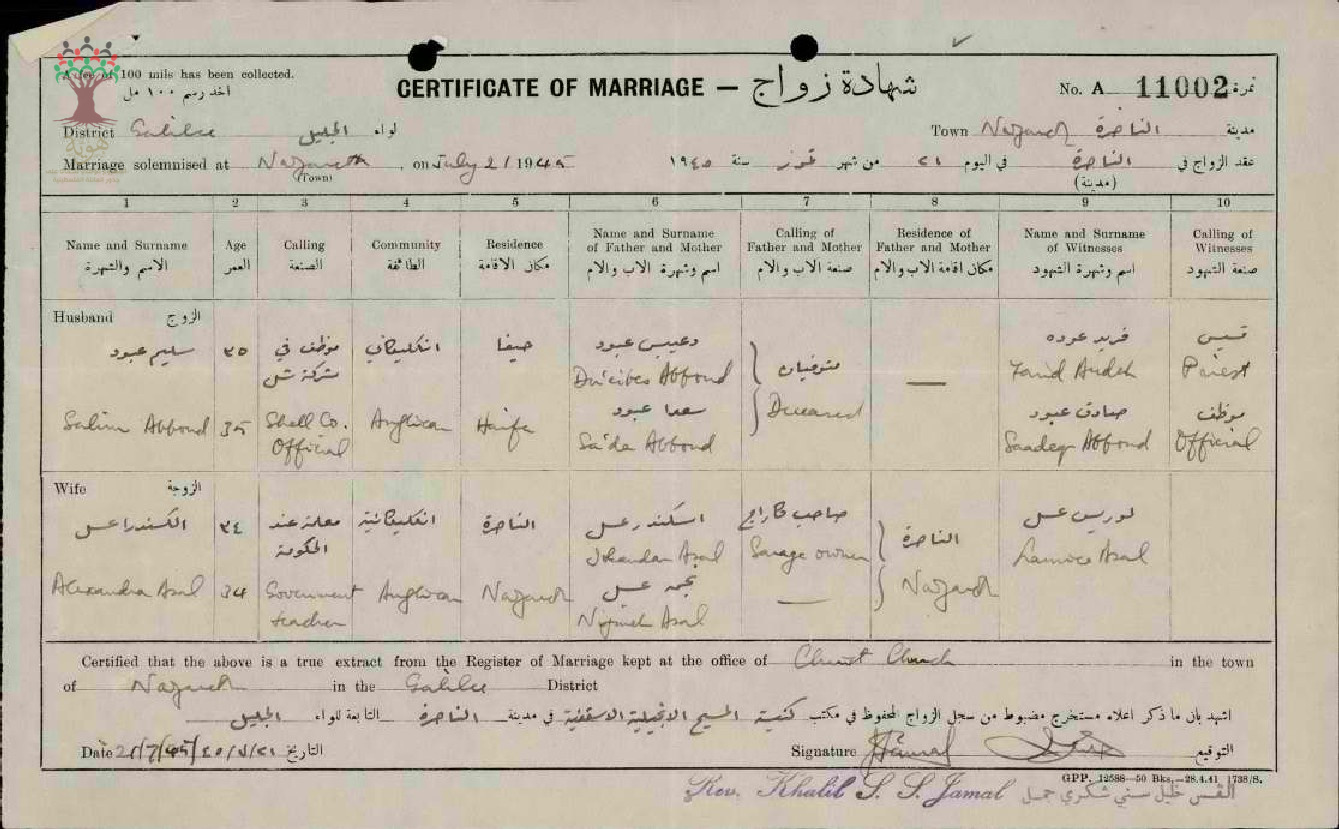 A fee of 100 mils has been collected.
اخذ رسم ١٠٠ مل
CERTIFICATE OF MARRIAGE — شهادة زواج
No. A 11002 نمرة
District Galilee الجليل لواء
Town Nazareth الناصرة مدينة
Marriage solemnised at Nazareth, on July 21 1945
عقد الزواج في الناصرة في اليوم ٢١ من شهر تموز سنة ١٩٤٥
(Town) (مدينة)
1 2 3 4 5 6 7 8 9 10
Name and Surname Age Calling Community Residence Name and Surname of Father and Mother Calling of Father and Mother Residence of Father and Mother Name and Surname of Witnesses Calling of Witnesses
الاسم والشهرة العمر الصنعة الطائفة مكان الاقامة اسم وشهرة الاب والام صنعة الاب والام مكان اقامة الاب والام اسم وشهرة الشهود صنعة الشهود
Husband الزوج
سليم عبود ٣٥ موظف في شركة شل انكليكاني حيفا دعيبس عبود متوفيان — فريد عوده قسيس
Farid Audeh Priest
سعدا عبود صادق عبود موظف
Salim Abboud 35 Shell Co. Official Anglican Haifa Sa'da Abboud Deceased Saadeq Abboud Official
Wife الزوجة
الكسندرا عسل ٣٤ معلمة عند الحكومة انكليكانية الناصرة اسكندر عسل صاحب كاراج الناصرة لوريس عسل
Iskandar Asal Garage owner
نجمه عسل
Alexandra Asal 34 Government teacher Anglican Nazareth Nijmeh Asal — Nazareth
Certified that the above is a true extract from the Register of Marriage kept at the office of Christ Church in the town
of Nazareth in the Galilee District
اشهد بان ما ذكر اعلاه مستخرج مضبوط من سجل الزواج المحفوظ في مكتب كنيسة المسيح الانجيلية الاسقفية في مدينة الناصرة التابعة للواء الجليل
Date 21/7/45 ٤٥/٧/٢١ التاريخ
Signature KJamal التوقيع
GPP. 12588—50 Bks.—28.4.41 1738/S.
Rev. Khalil S. S. Jamal القس خليل سني شكري جمل